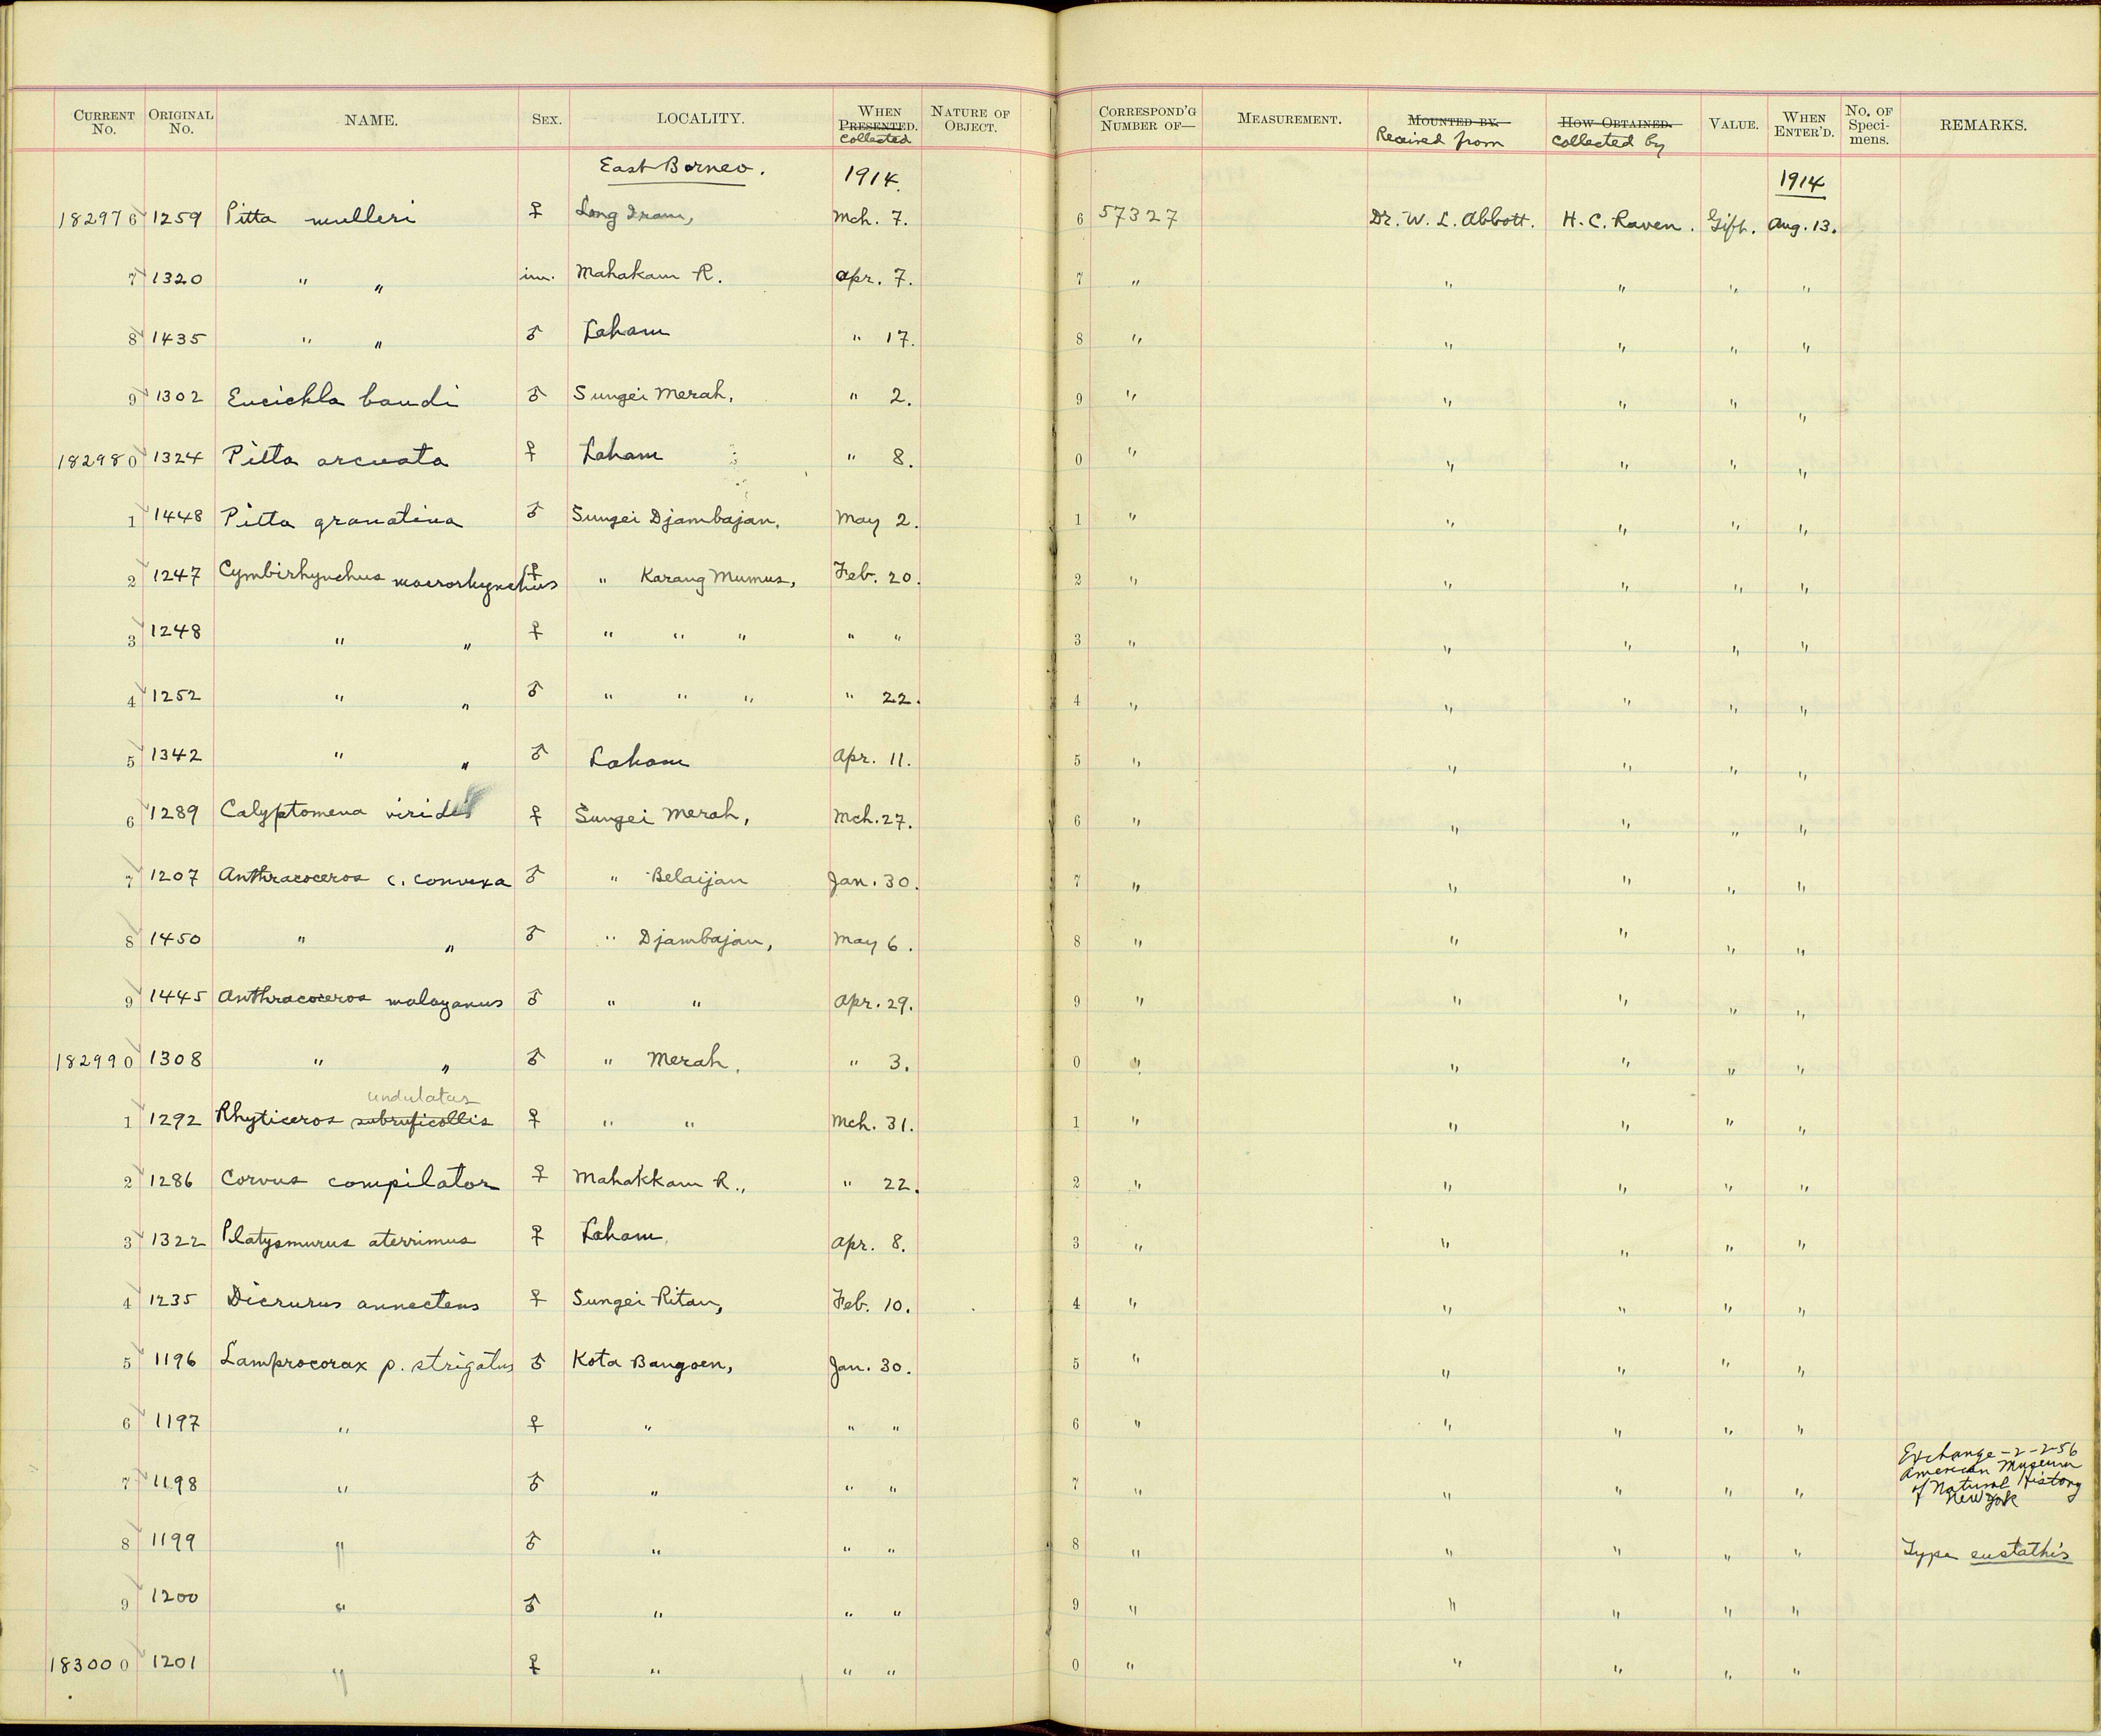 CURRENT No. ORIGINAL No. NAME. SEX. LOCALITY. WHEN PRESENTED. Collected NATURE OF OBJECT. CORRESPOND'G NUMBER OF— MEASUREMENT. MOUNTED BY. Received from HOW OBTAINED. Collected by VALUE. WHEN ENTER'D. No. OF Speci-mens. REMARKS.
East Borneo. 1914. 1914
182976 1259 Pitta mulleri ♀ Long Iram, Mch. 7. 6 57327 Dr. W. L. Abbott. H. C. Raven. Gift. Aug. 13.
7 1320 " " im. Mahakam R. Apr. 7. 7 " " " " "
8 1435 " " ♂ Laham " 17. 8 " " " " "
9 1302 Eucichla baudi ♂ Sungei Merah, " 2. 9 " " " " "
182980 1324 Pitta arcuata ♀ Laham " 8. 0 " " " " "
1 1448 Pitta granatina ♂ Sungei Djambajan, May 2. 1 " " " " "
2 1247 Cymbirhynchus macrorhynchus ♀ " Karang Mumus, Feb. 20. 2 " " " " "
3 1248 " " ♀ " " " " " 3 " " " " "
4 1252 " " ♂ " " " " 22. 4 " " " " "
5 1342 " " ♂ Laham Apr. 11. 5 " " " " "
6 1289 Calyptomena viridis ♀ Sungei Merah, Mch. 27. 6 " " " " "
7 1207 Anthracoceros c. convexa ♂ " Belaijan Jan. 30. 7 " " " " "
8 1450 " " ♂ " Djambajan, May 6. 8 " " " " "
9 1445 Anthracoceros malayanus ♂ " " Apr. 29. 9 " " " " "
182990 1308 " " ♂ " Merah, " 3. 0 " " " " "
undulatus
1 1292 Rhyticeros subruficollis ♀ " " Mch. 31. 1 " " " " "
2 1286 Corvus compilator ♀ Mahakkam R., " 22. 2 " " " " "
3 1322 Platysmurus aterrimus ♀ Laham, Apr. 8. 3 " " " " "
4 1235 Dicrurus annectens ♀ Sungei Ritan, Feb. 10. 4 " " " " "
5 1196 Lamprocorax p. strigatus ♂ Kota Bangoen, Jan. 30. 5 " " " " "
6 1197 " ♀ " " " 6 " " " " "
7 1198 " ♂ " " " 7 " " " " " Exchange - 2-2-56
American Museum
of Natural History
New York
8 1199 " ♂ " " " 8 " " " " " Type eustathis
9 1200 " ♂ " " " 9 " " " " "
183000 1201 " ♀ " " " 0 " " " " "